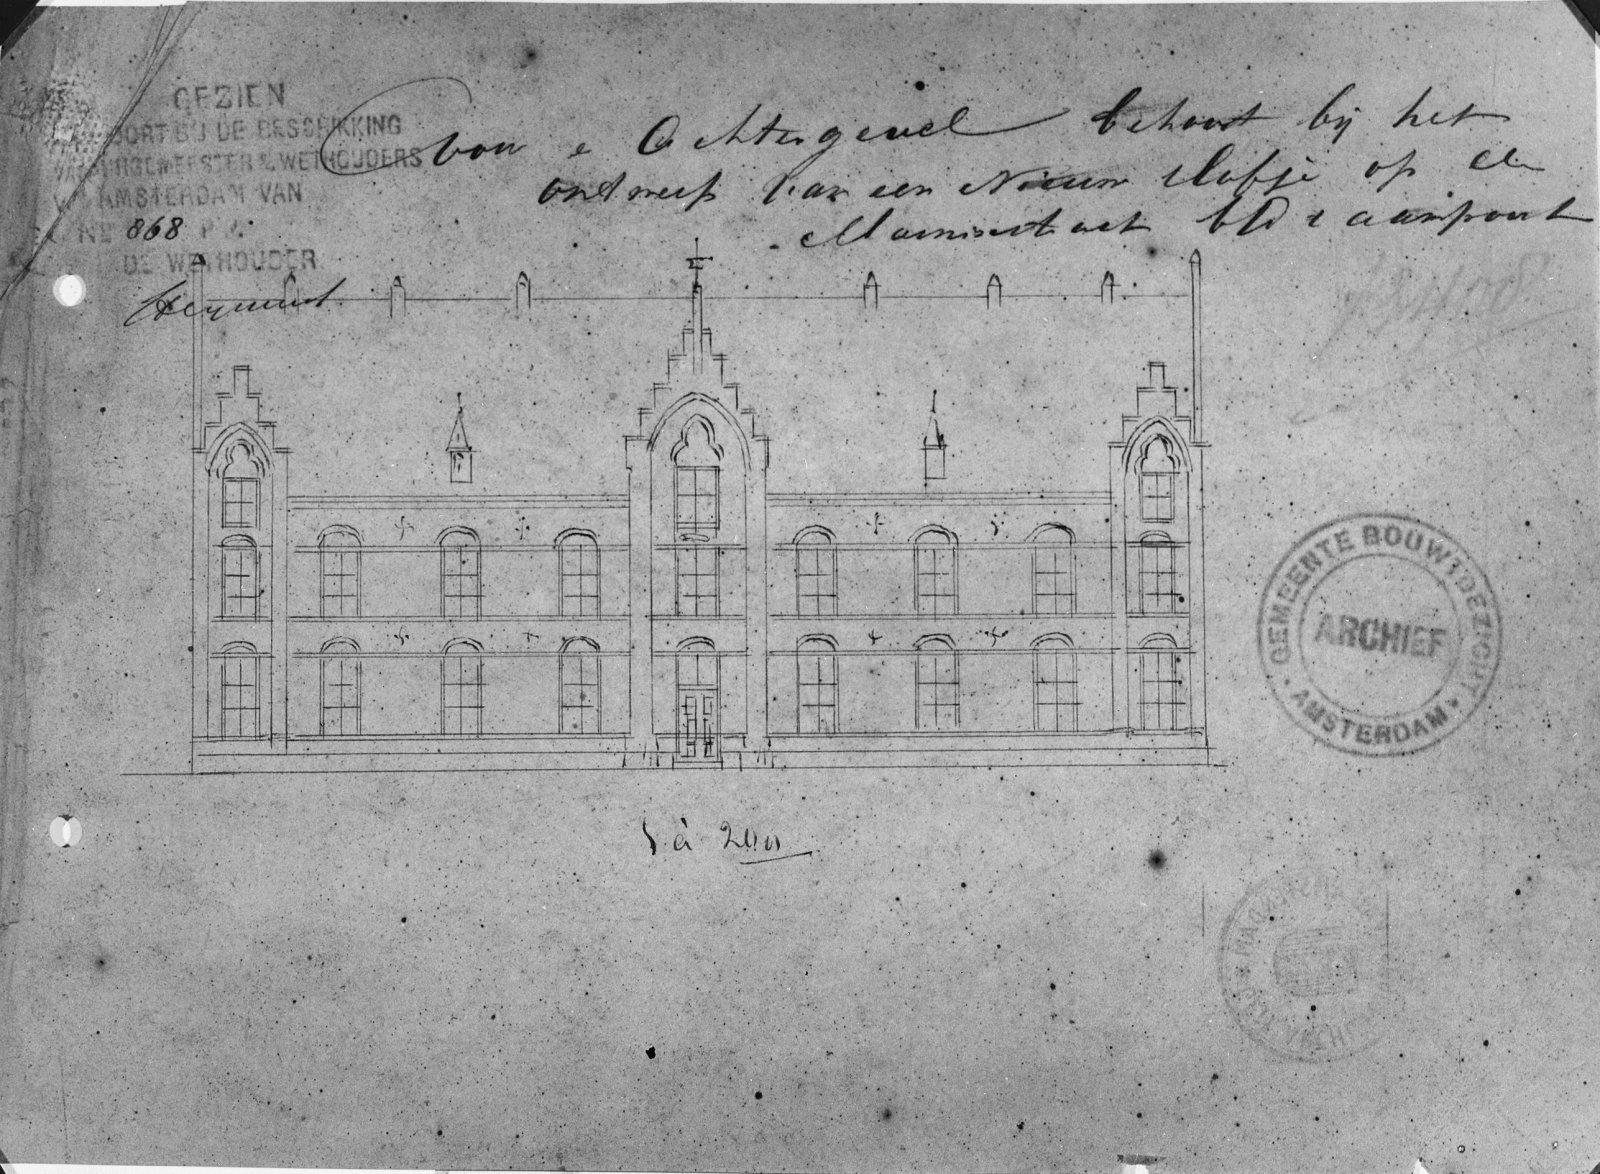 GEZIEN
OORT BIJ DE BESCHIKKING
VAN BURGEMEESTER & WETHOUDERS
V. AMSTERDAM VAN
N° 868 P.W.
DE WETHOUDER
Voor & Achtergevel behoort bij het
ontwerp van een Nieuw Hofje op de
Marnixstraat b/d Raampoort
GEMEENTE BOUWTOEZICHT
ARCHIEF
AMSTERDAM
1 à 200